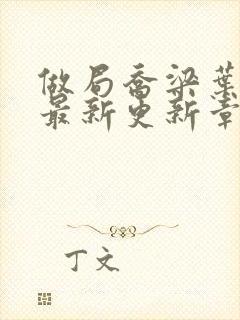 做局乔梁葉
最新更新章
丁文